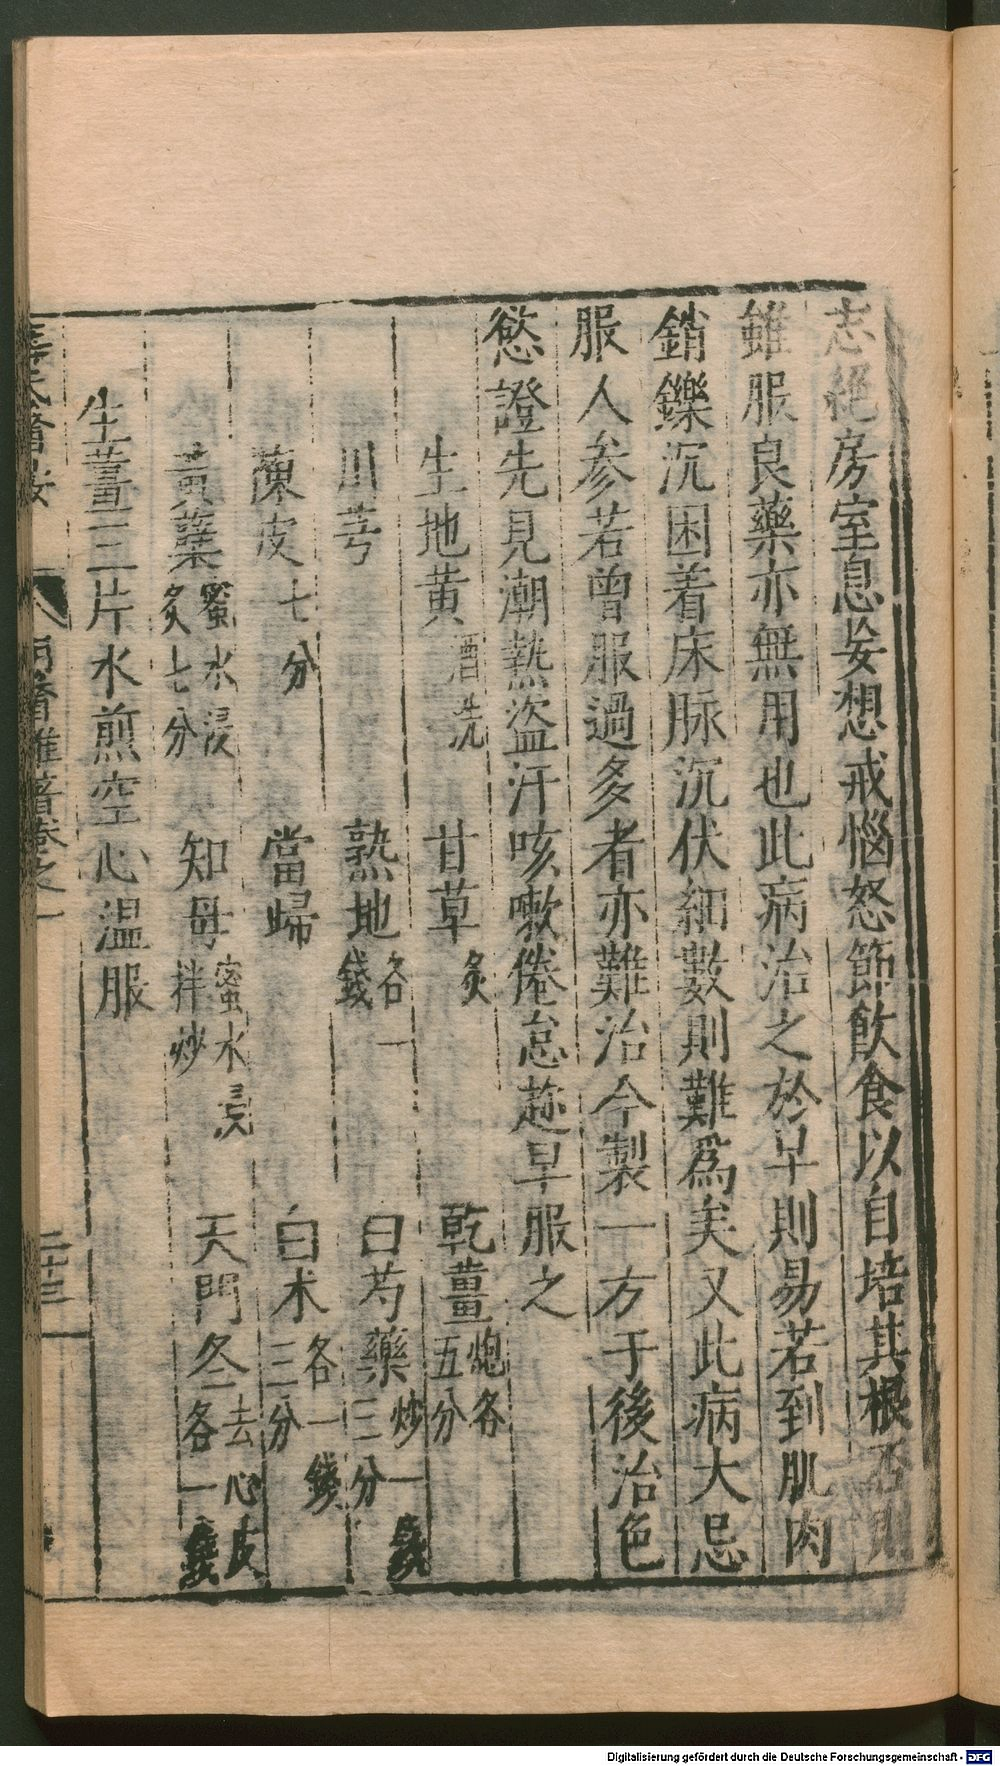 志絕房室息妄想戒惱怒節飲食以自培其根否則
雖服良藥亦無用也此病治之於早則易若到肌肉
銷鑠沉困着床脉沉伏細數則難爲矣又此病大忌
服人参若曾服過多者亦難治今製一方于後治色
慾證先見潮熱盗汗咳嗽倦怠趂早服之
生地黄酒洗 甘草炙 乾薑炮各五分
川芎 熟地各一錢 白芍藥炒一錢三分
陳皮七分 當歸 白术各一錢三分
黃蘗蜜水浸炙七分 知母蜜水浸拌炒 天門冬去心皮各一錢
生薑三片水煎空心温服
明醫雜著卷之一
二十三
Digitalisierung gefördert durch die Deutsche Forschungsgemeinschaft - DFG